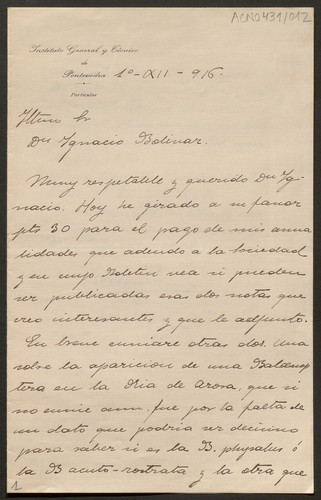 ACN0431/012
Instituto General y Técnico
de
Pontevedra 1º-XII-916.
Particular
Iltmo Sr
Dn Ignacio Bolivar.
Muy respetable y querido Dn Ig-
nacio. Hoy he girado a su favor
pts 30 para el pago de mis anua
lidades que adeudo a la Sociedad
y en cuyo Boletin vea si pueden
ser publicadas esas dos notas que
creo interesantes y que le adjunto.
En breve enviare otras dos. Una
sobre la aparicion de una Balaenop
tera en la Ria de Arosa, que si
no envie aun fue por la falta de
un dato que podria ser decisivo
para saber si es la B. physalus ó
la B acuto-rostrata y la otra que
1